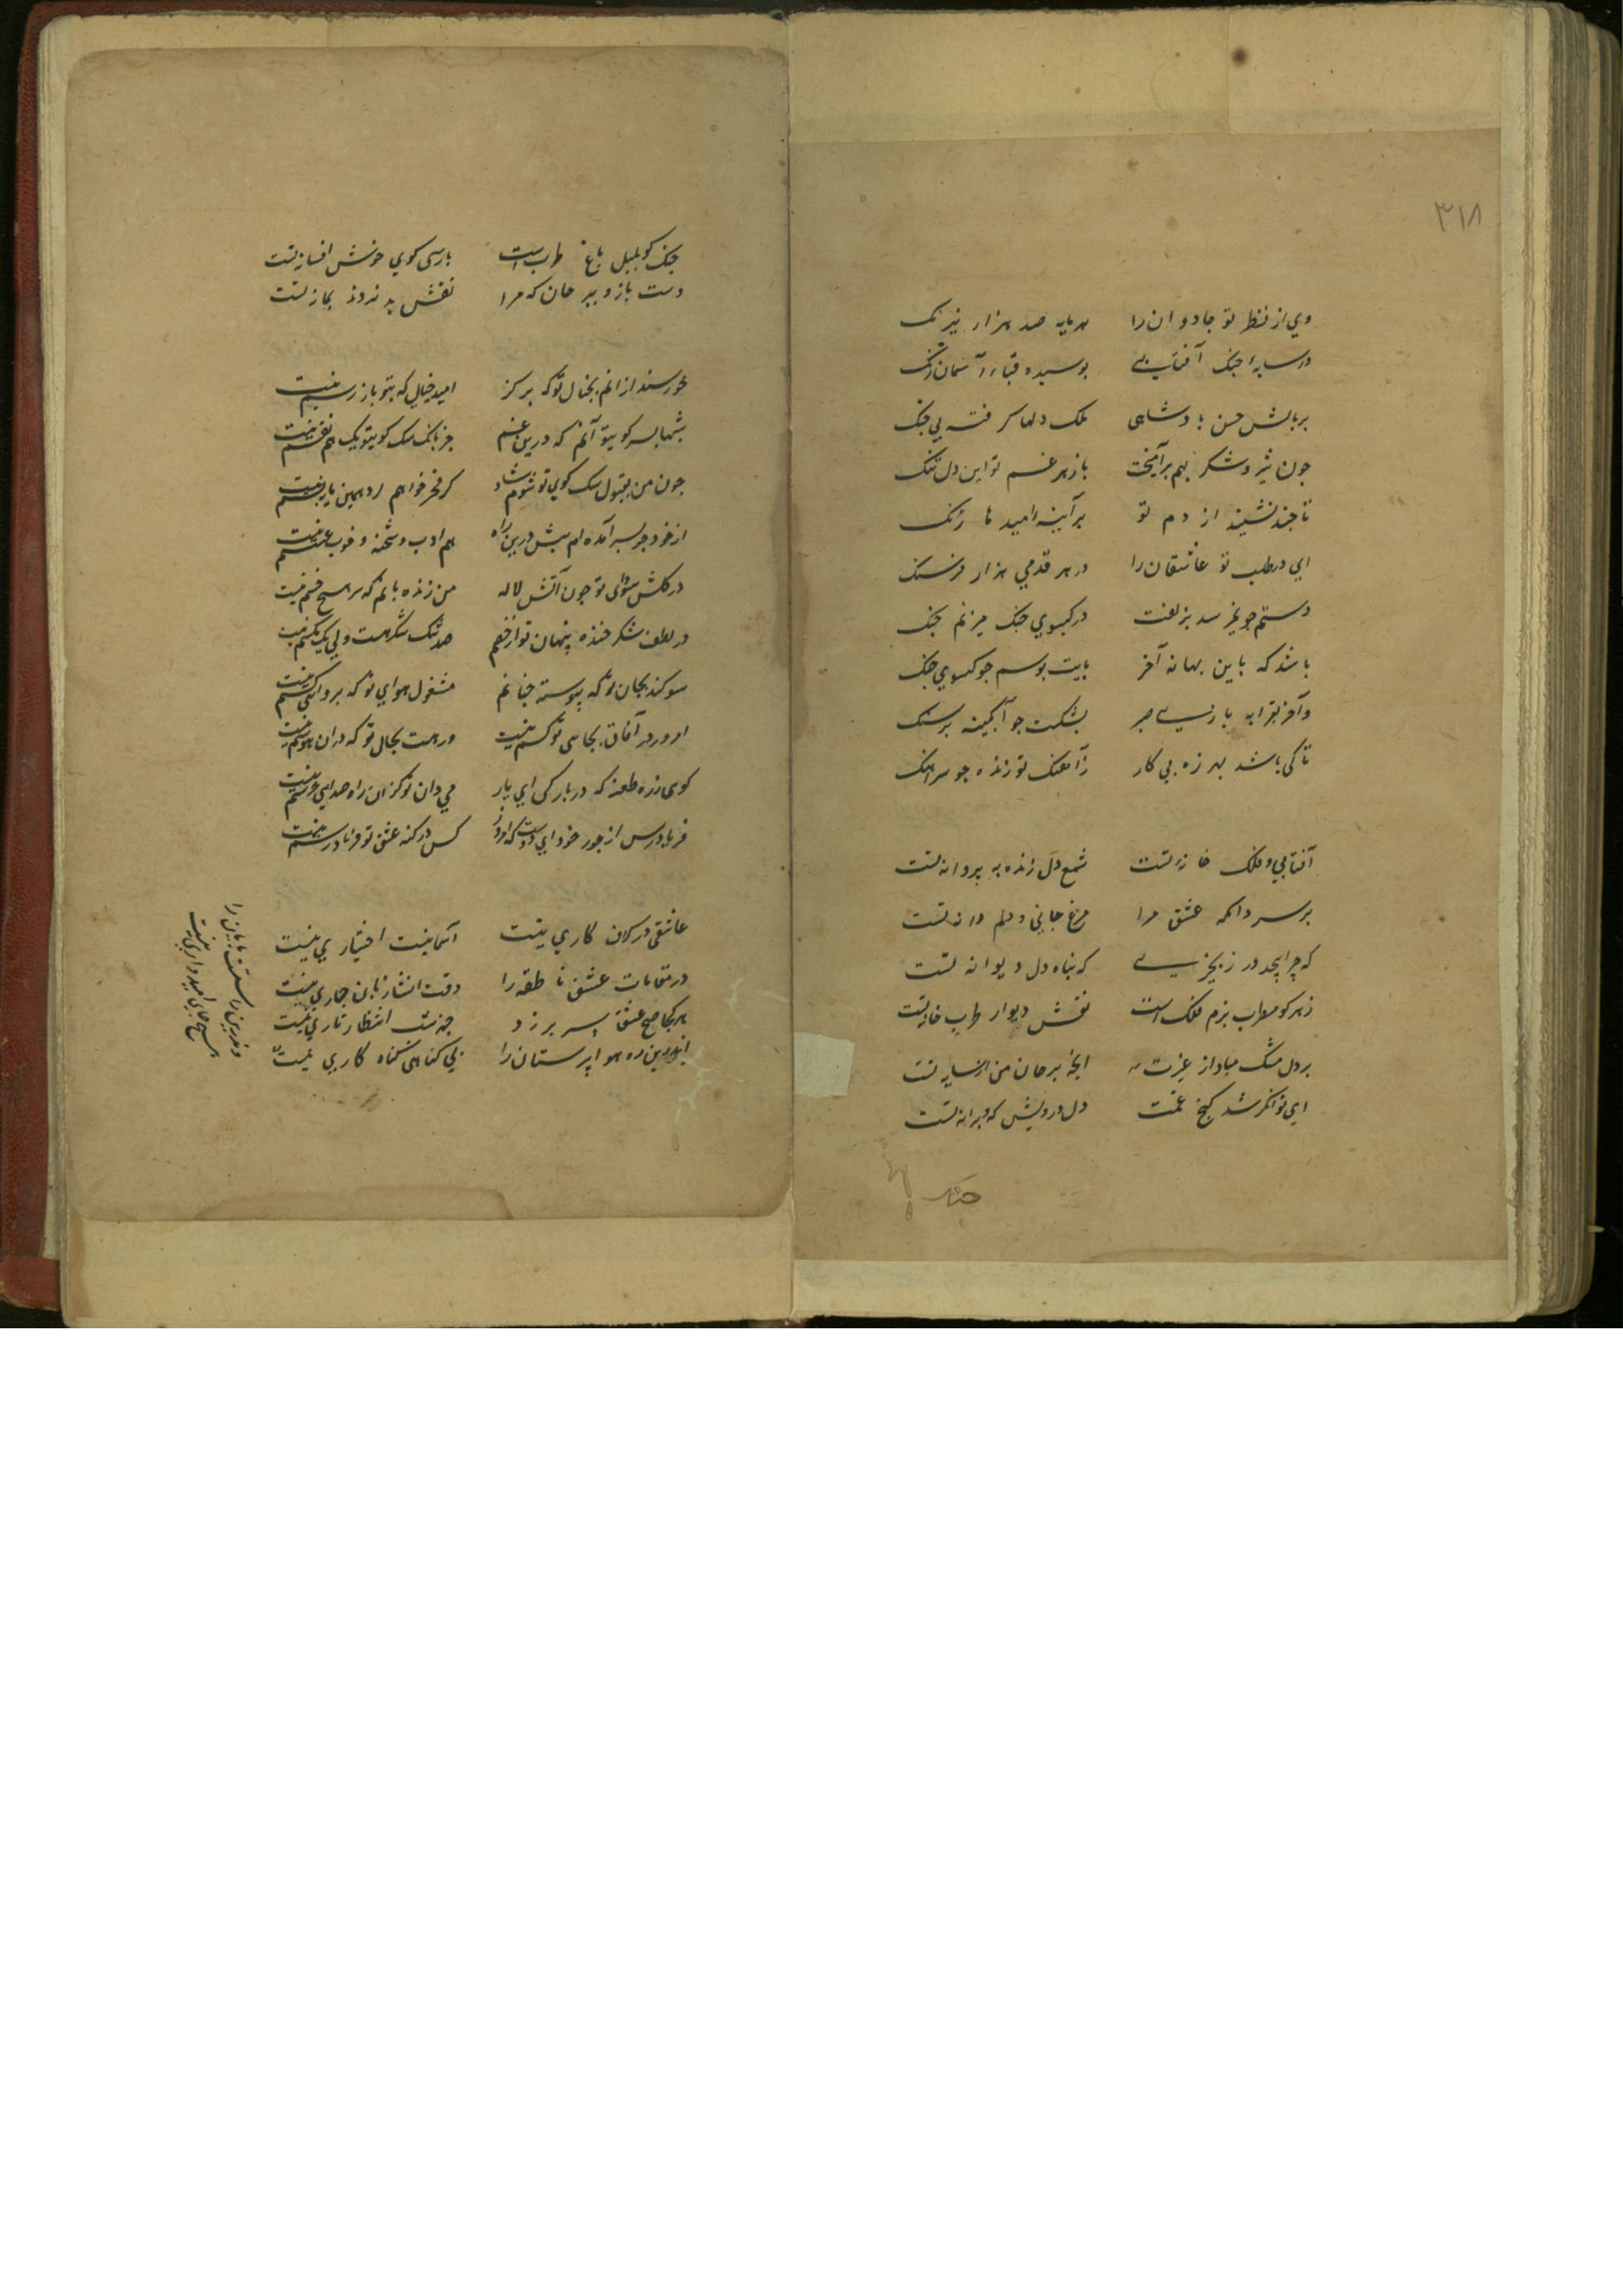 ۳۱۸
وي از نظر تو جادوان را سرمایه صد هزار نیرنک
در سایه اجنک آفتابی پوسیده قباء آسمان رنک
بر بالش حسن بادشاهی ملک دلها کرفته بی جنک
جون شیر و شکر بهم برآمیخت با زهر غم تو این دل تنک
تا جند نشیند از دم تو بر آینه امید ما زنک
ای در طلب تو عاشقان را در هر قدمی هزار فرسنک
دستم جو نمیرسد بزلفت در کیسوي جنک میزنم جنک
باشد که باین بهانه آخر بایت بوسم جو کیسوي جنک
وآخر بترابه بار صبر بشکست جو آبکینه بر سنک
تا کی باشد بهرزه بی کار زآهنک تو زنده جو سرآهنک
آفتابي و فلک خانه تست شمع دل زنده به پروانه تست
بر سر دامکه عشق مرا مرغ جانی و دلم دانه تست
که جرا بیجد در زنجیر که بناه دل دیوانه تست
زهره کو مطرب بزم فلک است نقش دیوار طرب خانه تست
بر دل مشک مباد از غیرت آنجه بر جان من از شانه تست
ای توانکر شد کنج غمت دل درویش که ویرانه تست
جنک
جنک کو بلبل باغ طرب است بارسی کوي خوشش افسانه تست
دست باز و ببر جان که مرا نقش بد ندود بمانه تست
خورسند از انم بخیال تو که هرکز امید خیالی که بتو باز رسم نیست
شبها بسر کوی تو آنم که درین غم جز بانک سک کوی تو یک هم نفسم نیست
جون من بقبول سک کوي تو شوم شاد کر فخر نخواهم
از خود جو بسر آمده ام بیش درین راه هم ادب و شحنه و خوب عسسم نیست
در کلشن سودای تو جون آتش لاله من زنده بانم که سر هیج خسم نیست
در لطف شکر خنده پنهان تو از خشم صد تنک شکر هست ولی یک مکسم نیست
سوکند بجان تو که پیوسته جنانم مشغول هواي تو که پرواي کسم نیست
امروز در آفاق بجای تو کسم نیست ور هست بجان تو که در ان هوسم نیست
کوی زده طعنه که در بار کی ای یار می دان تو کز ان راه صدای جرسم نیست
فریاد رس از جور خود ای دوست که امروز کس در کنه عشق تو فریاد رسم نیست
عاشقی در کلان کاري نیست آسمانیست اختیاري نیست
در مقامات عشق ناطقه را وقت انشا زبان جاري نیست
هر کجا صبح عشق سر برزد جز شب انتظار تاري نیست
اندرین ره هوا پرستان را بی کناهی کناه کاري نیست
واندرین راست بابان را
هیج جاي امیدواري نیست